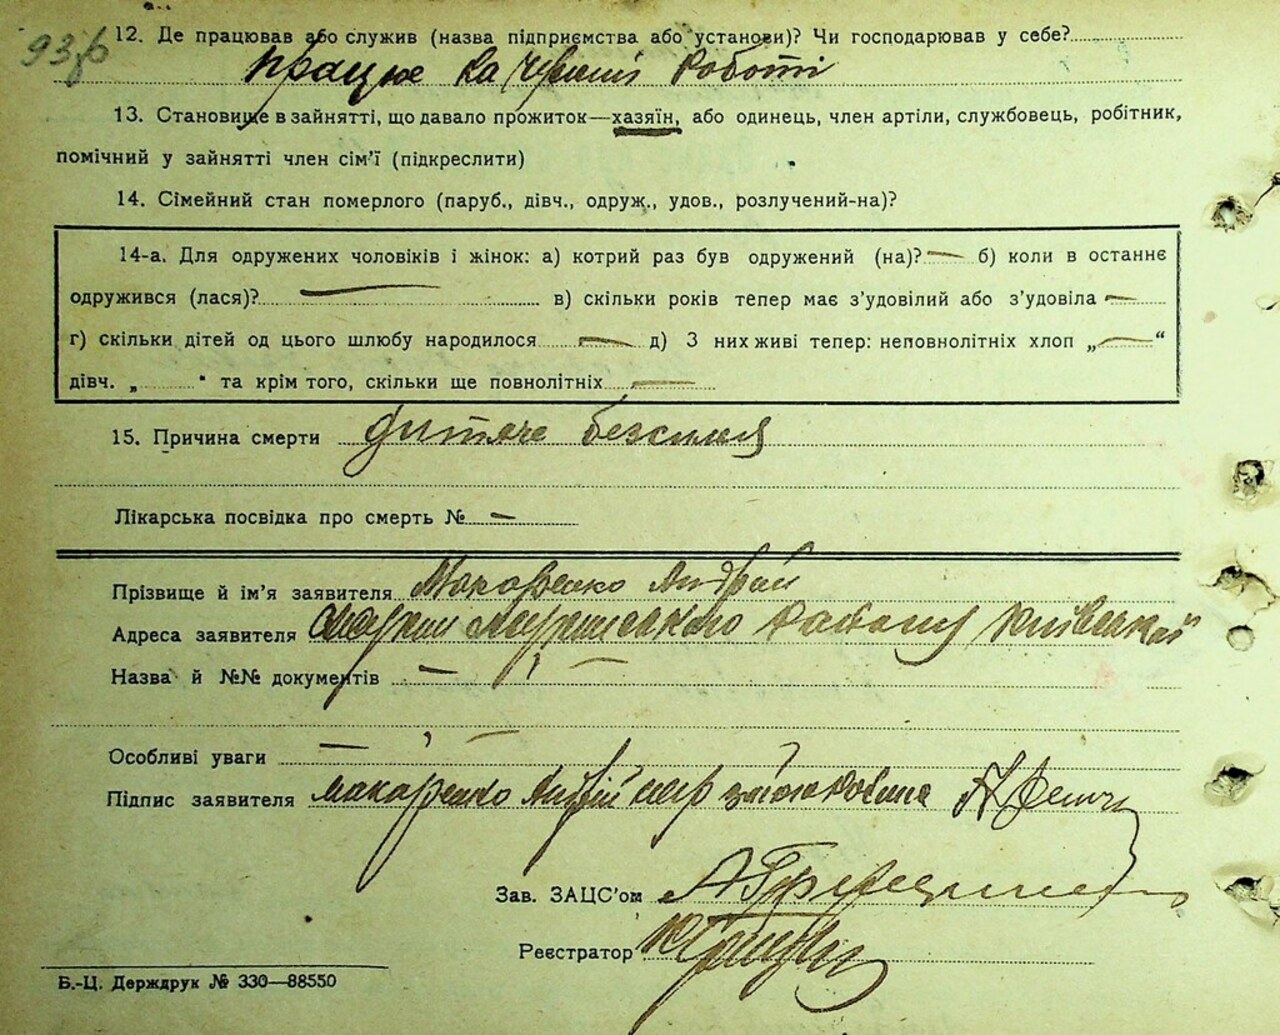 93б
12. Де працював або служив (назва підприємства або установи)? Чи господарював у себе?
працює на роботі
13. Становище в зайнятті, що давало прожиток—хазяїн, або одинець, член артіли, службовець, робітник,
помічний у зайнятті член сім'ї (підкреслити)
14. Сімейний стан померлого (паруб., дівч., одруж., удов., розлучений-на)?
14-а. Для одружених чоловіків і жінок: а) котрий раз був одружений (на)? — б) коли в останнє
одружився (лася)? — в) скільки років тепер має з'удовілий або з'удовіла —
г) скільки дітей од цього шлюбу народилося — д) З них живі тепер: неповнолітніх хлоп „—“
дівч. „ “ та крім того, скільки ще повнолітніх —
15. Причина смерти дитяче безсилля
Лікарська посвідка про смерть № —
Прізвище й ім'я заявителя Макаренко Андрій
Адреса заявителя району Київської
Назва й №№ документів — , —
Особливі уваги — , —
Підпис заявителя Макаренко Андрій
Зав. ЗАЦС'ом
Реєстратор
Б.-Ц. Держдрук № 330—88550